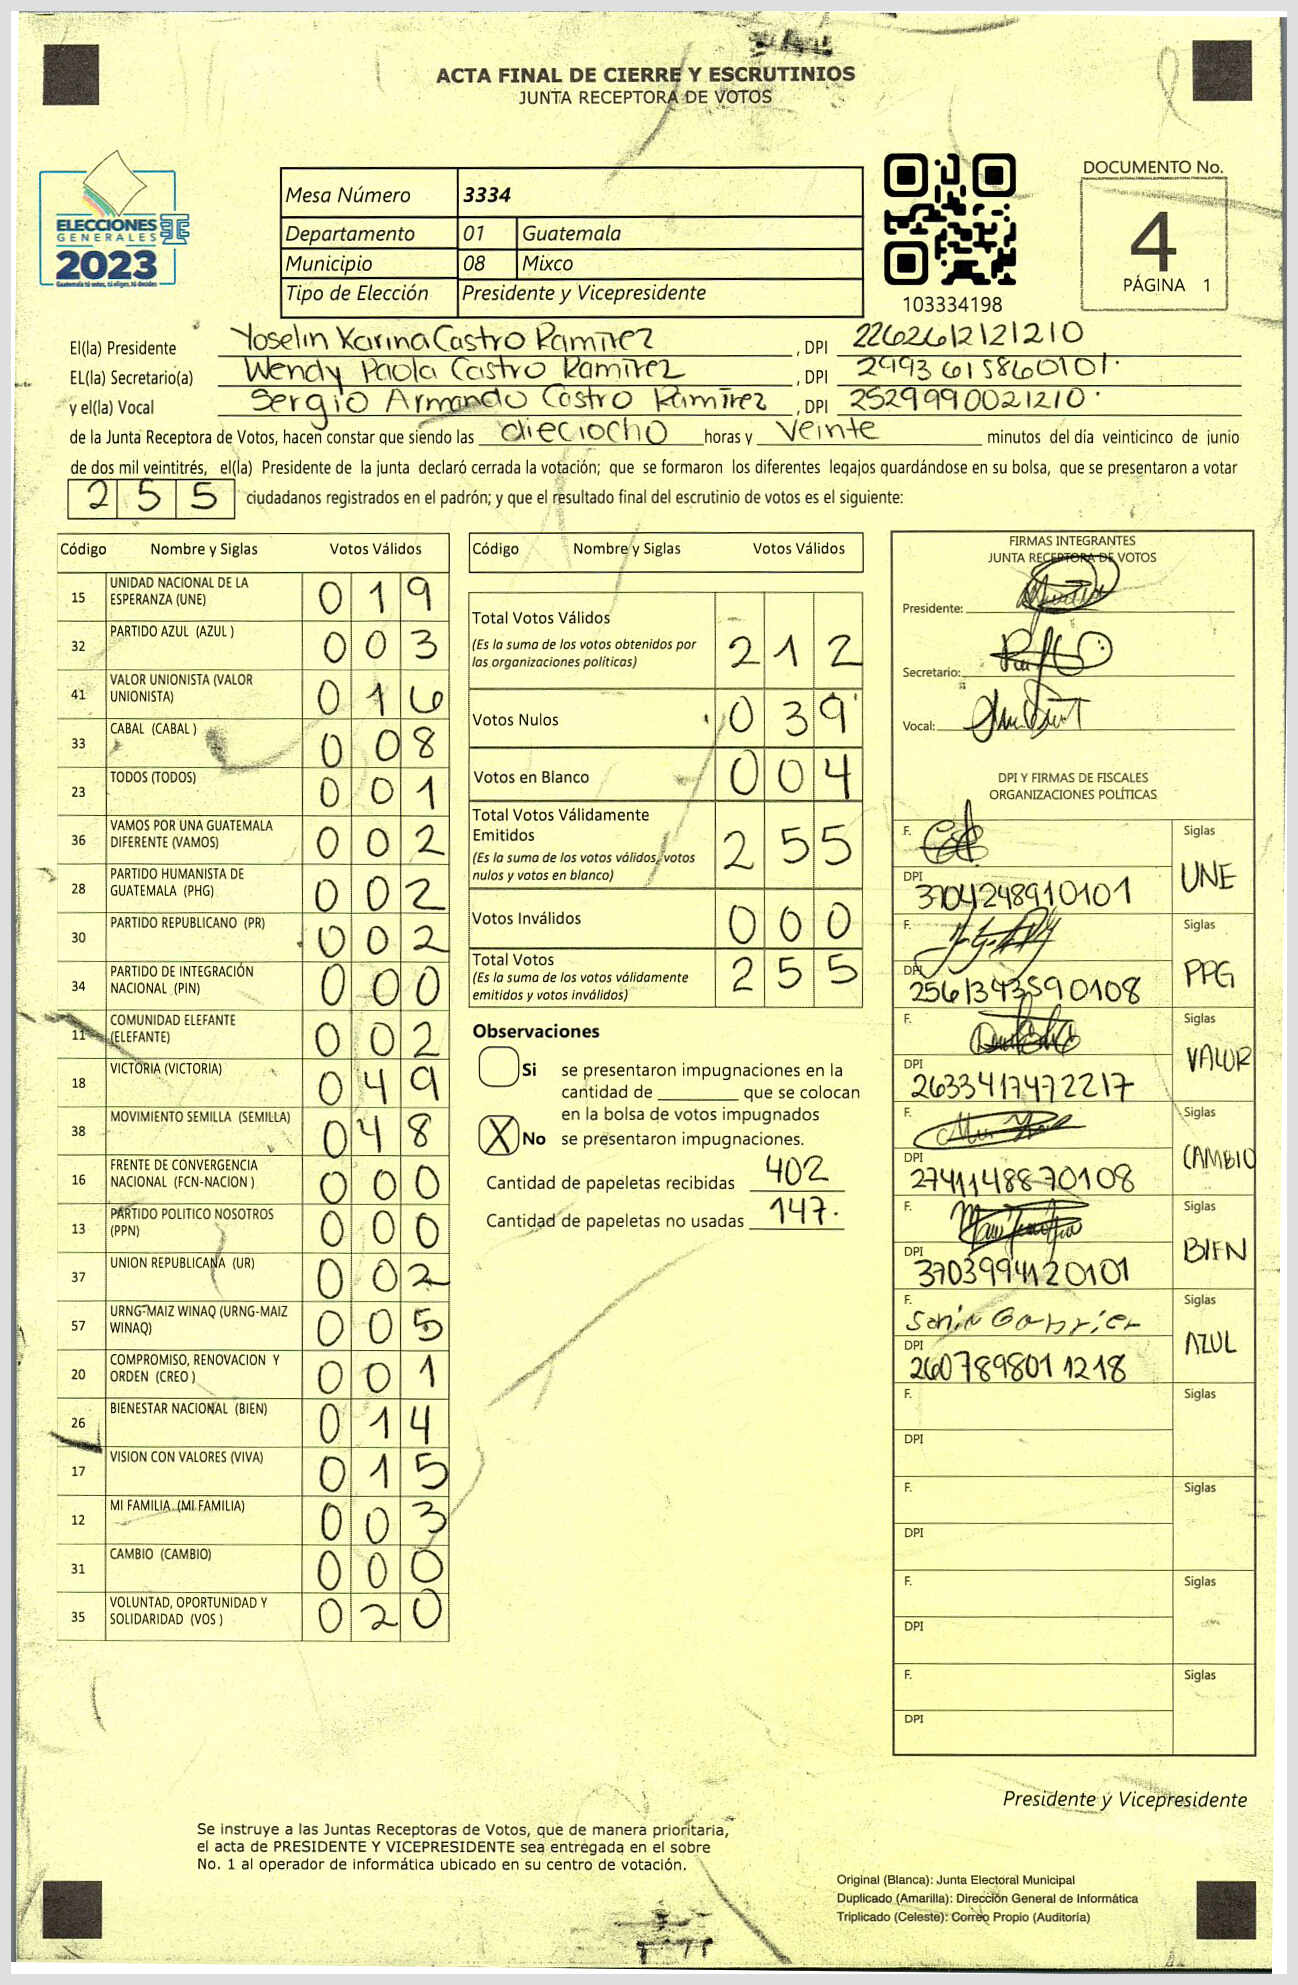 ACTA FINAL DE CIERRE Y ESCRUTINIOS
JUNTA RECEPTORA DE VOTOS
ELECCIONES
GENERALES
2023
Guatemala tú votas, tú eliges, tú decides
Mesa Número 3334
Departamento 01 Guatemala
Municipio 08 Mixco
Tipo de Elección Presidente y Vicepresidente
103334198
DOCUMENTO No.
4
PÁGINA 1
El(la) Presidente Yoselin Karina Castro Ramírez , DPI 2262612121210
EL(la) Secretario(a) Wendy Paola Castro Ramírez , DPI 2993615860101.
y el(la) Vocal Sergio Armando Castro Ramírez , DPI 2529990021210.
de la Junta Receptora de Votos, hacen constar que siendo las dieciocho horas y veinte minutos del día veinticinco de junio
de dos mil veintitrés, el(la) Presidente de la junta declaró cerrada la votación; que se formaron los diferentes legajos guardándose en su bolsa, que se presentaron a votar
255 ciudadanos registrados en el padrón; y que el resultado final del escrutinio de votos es el siguiente:
Código Nombre y Siglas Votos Válidos
15 UNIDAD NACIONAL DE LA ESPERANZA (UNE) 019
32 PARTIDO AZUL (AZUL ) 003
41 VALOR UNIONISTA (VALOR UNIONISTA) 016
33 CABAL (CABAL ) 008
23 TODOS (TODOS) 001
36 VAMOS POR UNA GUATEMALA DIFERENTE (VAMOS) 002
28 PARTIDO HUMANISTA DE GUATEMALA (PHG) 002
30 PARTIDO REPUBLICANO (PR) 002
34 PARTIDO DE INTEGRACIÓN NACIONAL (PIN) 000
11 COMUNIDAD ELEFANTE (ELEFANTE) 002
18 VICTORIA (VICTORIA) 049
38 MOVIMIENTO SEMILLA (SEMILLA) 048
16 FRENTE DE CONVERGENCIA NACIONAL (FCN-NACION ) 000
13 PARTIDO POLITICO NOSOTROS (PPN) 000
37 UNION REPUBLICANA (UR) 002
57 URNG-MAIZ WINAQ (URNG-MAIZ WINAQ) 005
20 COMPROMISO, RENOVACION Y ORDEN (CREO ) 001
26 BIENESTAR NACIONAL (BIEN) 014
17 VISION CON VALORES (VIVA) 015
12 MI FAMILIA (MI FAMILIA) 003
31 CAMBIO (CAMBIO) 000
35 VOLUNTAD, OPORTUNIDAD Y SOLIDARIDAD (VOS ) 020
Código Nombre y Siglas Votos Válidos
Total Votos Válidos 212
(Es la suma de los votos obtenidos por
las organizaciones políticas)
Votos Nulos 039
Votos en Blanco 004
Total Votos Válidamente
Emitidos 255
(Es la suma de los votos válidos, votos
nulos y votos en blanco)
Votos Inválidos 000
Total Votos 255
(Es la suma de los votos válidamente
emitidos y votos inválidos)
Observaciones
Si se presentaron impugnaciones en la
cantidad de ________ que se colocan
en la bolsa de votos impugnados
X No se presentaron impugnaciones.
Cantidad de papeletas recibidas 402
Cantidad de papeletas no usadas 147.
FIRMAS INTEGRANTES
JUNTA RECEPTORA DE VOTOS
Presidente:
Secretario:
Vocal:
DPI Y FIRMAS DE FISCALES
ORGANIZACIONES POLÍTICAS
F. Siglas
DPI 3704248910101 UNE
F. Siglas
DPI 2561343590108 PPG
F. Siglas
DPI 2633417472217 VALOR
F. Siglas
DPI 2741148870108 CAMBIO
F. Siglas
DPI 3703994120101 BIEN
F. Siglas
DPI 2607898011218 AZUL
F. Siglas
DPI
F. Siglas
DPI
F. Siglas
DPI
F. Siglas
DPI
Presidente y Vicepresidente
Se instruye a las Juntas Receptoras de Votos, que de manera prioritaria,
el acta de PRESIDENTE Y VICEPRESIDENTE sea entregada en el sobre
No. 1 al operador de informática ubicado en su centro de votación.
Original (Blanca): Junta Electoral Municipal
Duplicado (Amarilla): Dirección General de Informática
Triplicado (Celeste): Correo Propio (Auditoría)